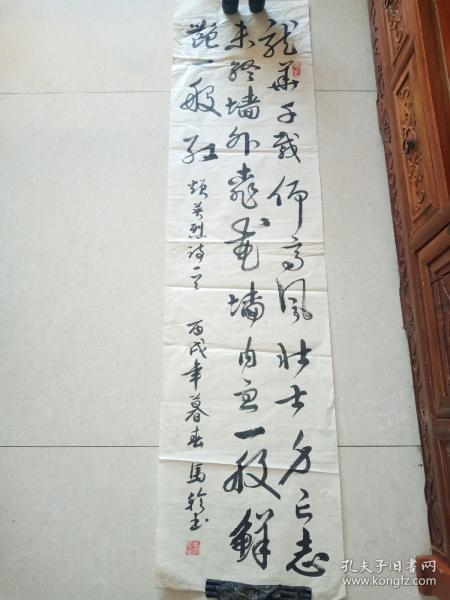 龍華千載仰高風壮士身亡志
未終墙外桃花墙内血一般鲜
艷一般红 颂英烈诗一首 丙戌年暮春 馬
孔夫子旧书网
www.kongfz.com